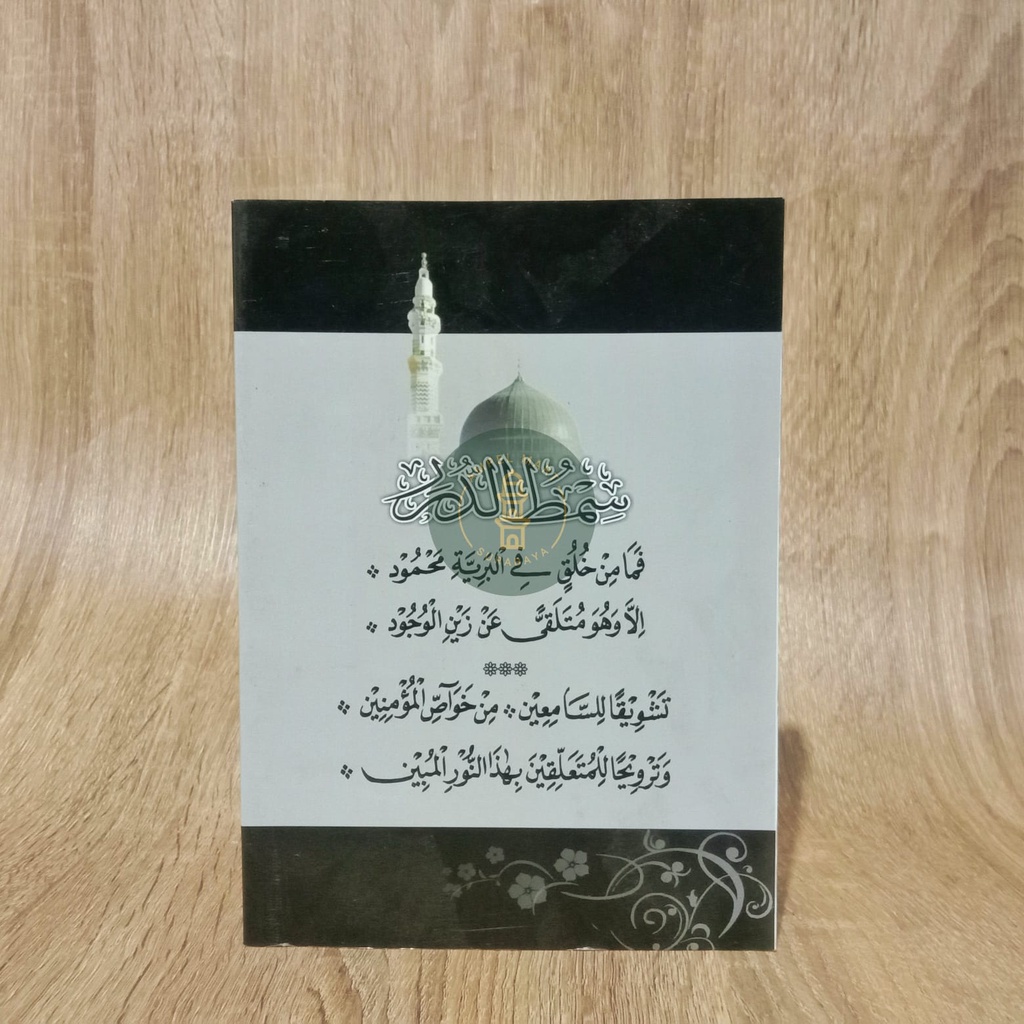 سِمْطُ الدُّرَر
SURABAYA
فَمَا مِنْ خُلُقٍ فِي الْبَرِيَّةِ مَحْمُوْد
اِلَّا وَهُوَ مُتَلَقًّى عَنْ زَيْنِ الْوُجُوْد
تَشْوِيْقًا لِلسَّامِعِيْن مِنْ خَوَآصِّ الْمُؤْمِنِيْن
وَتَرْوِيْحًا لِلْمُتَعَلِّقِيْنَ بِهٰذَا النُّوْرِ الْمُبِيْن